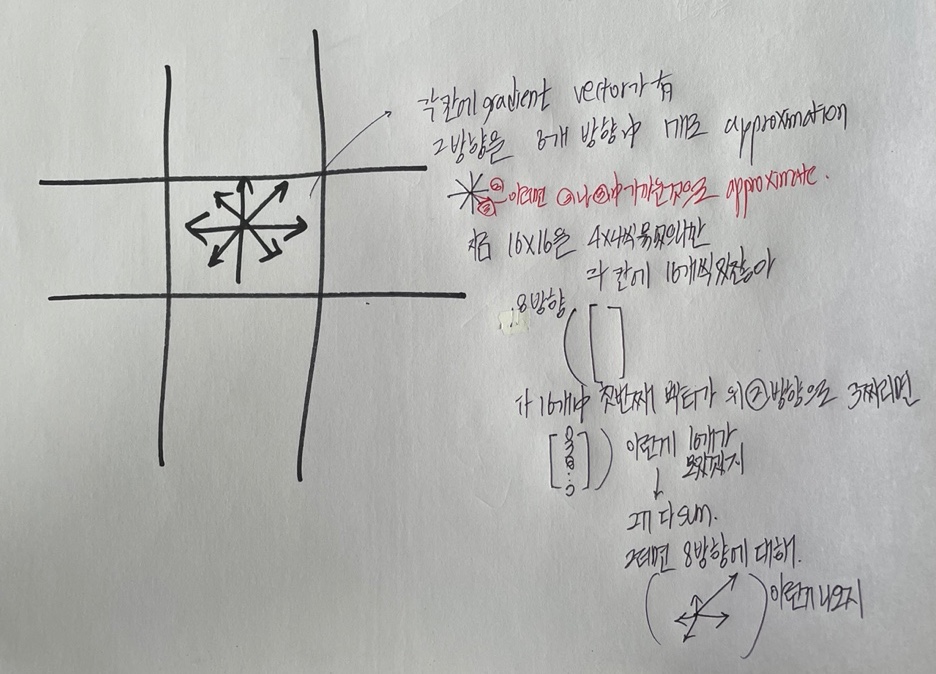 각 칸에 gradient vector가 有
그 방향을 8개 방향中 1개로 approximation
① ② 이러면 ①나 ②中 가까운것으로 approximate.
지금 16x16을 4x4씩 묶었으니깐
각 칸에 16개씩 있잖아
8방향
가 16개中 첫번째 벡터가 위 ② 방향으로 3짜리면
[0 3 0 ⋮ 0] 이런게 16개가
모았겠지
그거 다 sum.
그러면 8방향에 대해.
이런게 나오지